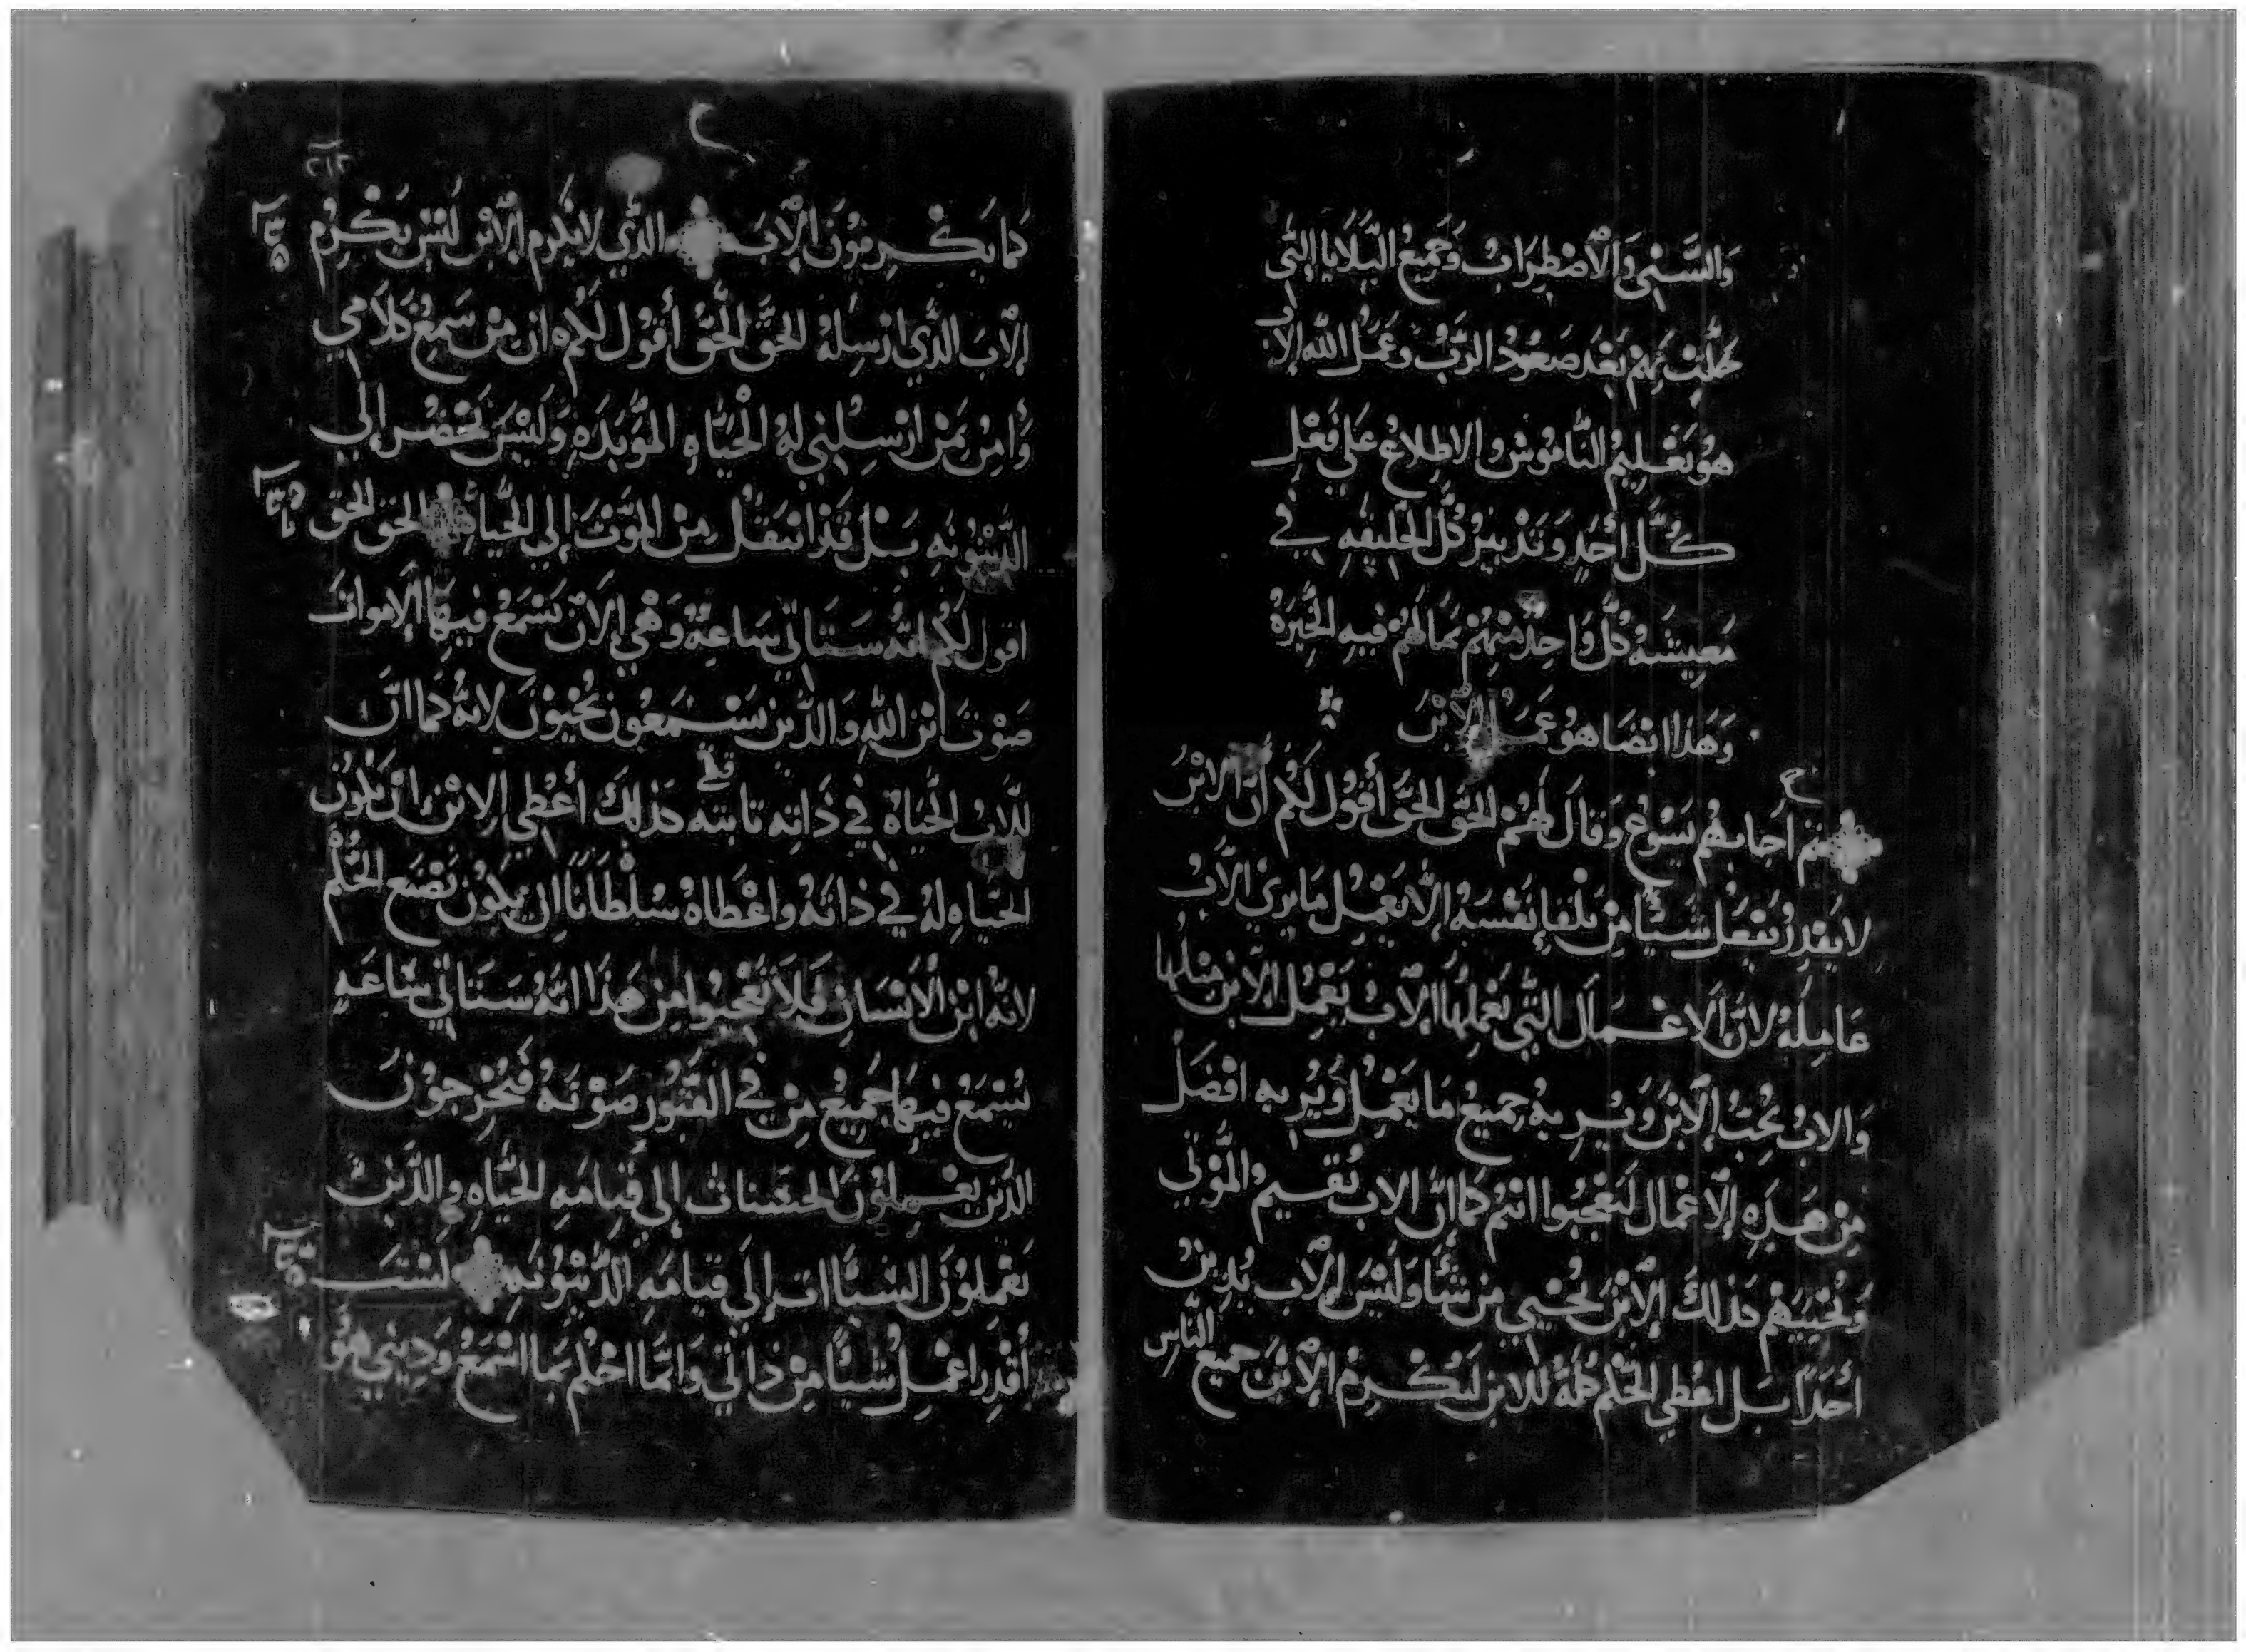 وَالسَّبْي وَالاضْطِرَابُ وَجَمِيعُ البَلَايَا التِي
حَلَّتْ بِهِمْ بَعْدَ صَعُودُ الرَّبُّ وَعَمَلُ الله إلا
هوُ تَعْلِيمُ النَّامُوسْ والاطلاعُ عَلي فَعْلِ
كُلِّ أَحَدٍ وَتَدْبِيرُ كُلِّ الخَلِيقَهِ فِي
مَعِيشَةُ كُلُّ وَاحِدْ مِنْهُمْ بمَا لَهُمْ فِيهِ الخِيَرَهُ
وَهَذا ايْضَا هوُ عَمَلُ الاِبْنَ
ثم أجابهُم يَسُوعُ وَقالَ لَهُمْ الحَقَّ الحَقَّ أقُولُ لَكُم انَّ الابْنَ
لا يَقدِرُ يَفعَل شَيئًا مِنْ تِلقا نَفْسِهُ إلَّا يَعْمِل مَا يرَي الآبُ
عَامِلَهُ لانَّ الاعْمَالَ التِّي يَعْمِلُهَا الآبُ يَعْمِل الابن مِثلهَا
وَالابُ يُحِبُّ الابْنَ وَيُرِيهُ جَمِيعُ مَا يَعْمِلُ وَيُرِيهِ افْضَلُ
مِنْ هَذِهِ الاعْمَال لتَعْجَبُوا انتُم كَمَا انَّ الابُ يُقيمُ المُوْتَي
وَيُحْيِيَهمْ كذلكَ الابْنَ يُحْيِي مِن شَآءَ وَلَيْسَ الآبُ يُدِينُ
أحَدًا بَل اعْطِي الحُكْم كلهُ للابن لتُكْرِمُ الابْنَ جميع الناس
ح
٢١٢
كَمَا يُكْرِمُونَ الآبَ الذِّي لا يُكْرِم الابْن لَيْسَ يُكْرِمُ
الآبَ الذَّي ارْسِلهُ الحَقَّ الحَقَّ أقُول لَكُم ان مِنْ سَمِعْ كَلَامِي
وَامِنْ بمَنْ ارْسِلنِي لهُ الْحَيَاهِ المُوَبَدَهِ وَلَيْسَ يَحْضُر إلي
الدَّيْنُونَهِ بَلْ قَدْ انْتَقَلُ مِنْ المَوْتَ إلي الحَياهِ الحق الحق
اقول لَكُم انَّهُ سَتَاتِي سَاعَةٌ وَهْي الآنَ يَسْمَعُ فِيهَا الامواتَ
صَوْتَ ابْن اللهِ وَالذَّين يَسْمَعُون يُحْيَوْنَ لانهُ كَمَا انَّ
للآبُ الحَيَاهُ فِي ذَاتِه ثابته كذلكَ أعْطِي الابْنَ انْ يَكُونَ
الحَيَاهِ لهُ في ذاتَهُ واعْطَاهُ سُلْطَانًا ان يَكُونَ يَصْنَع الحُكْم
لانَّهُ ابْن الانْسَانِ فَلَا تَعْجَبُوا مِن هَذَا انَّهُ سَتَاتِي سَاعَهِ
يُسْمَعُ فِيهَا جَمِيعُ مِنْ فِي القُبُور صَوْتَهُ فَيُخْرِجوُنَ
الذَّين يَعْمِلوُنَ الحَسَناتْ إلي قَيامَهِ الحَيَاهِ والذَّينَ
يَعْمَلوُنَ السَّيَّاات إلي قيامَهِ الدَّيْنُونَهِ لَسْتَ
أقْدِر اعْمِل شَيْئًا مِنْ ذاتي وَانَّما احْكُم بمَا اسْمَعُ وَدِيْني هُوَ